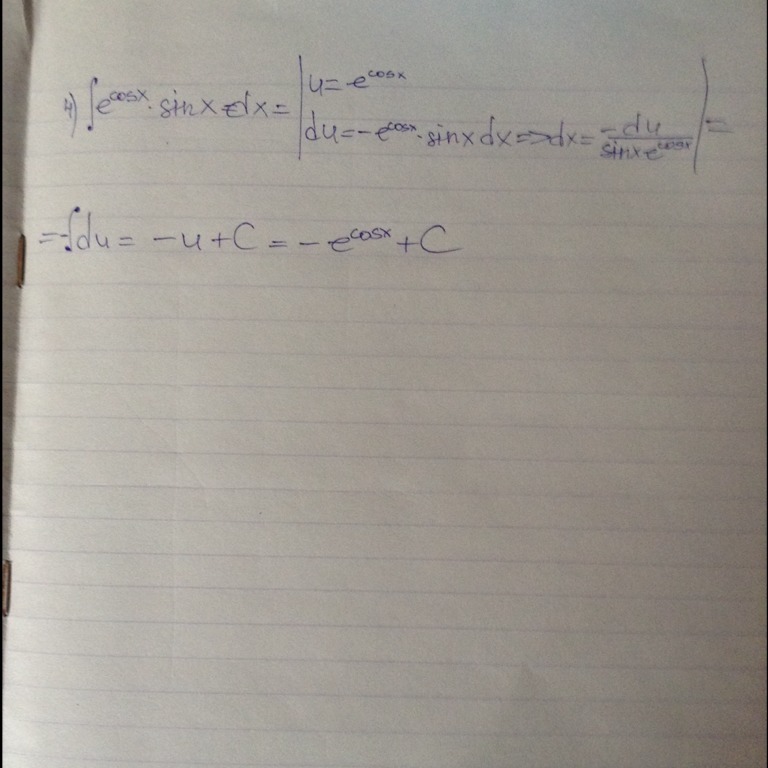 4) ∫e^cosx · sinx dx = | u = e^cosx
du = -e^cosx · sinx dx => dx = -du / sinx e^cosx | =
= -∫du = -u + C = -e^cosx + C